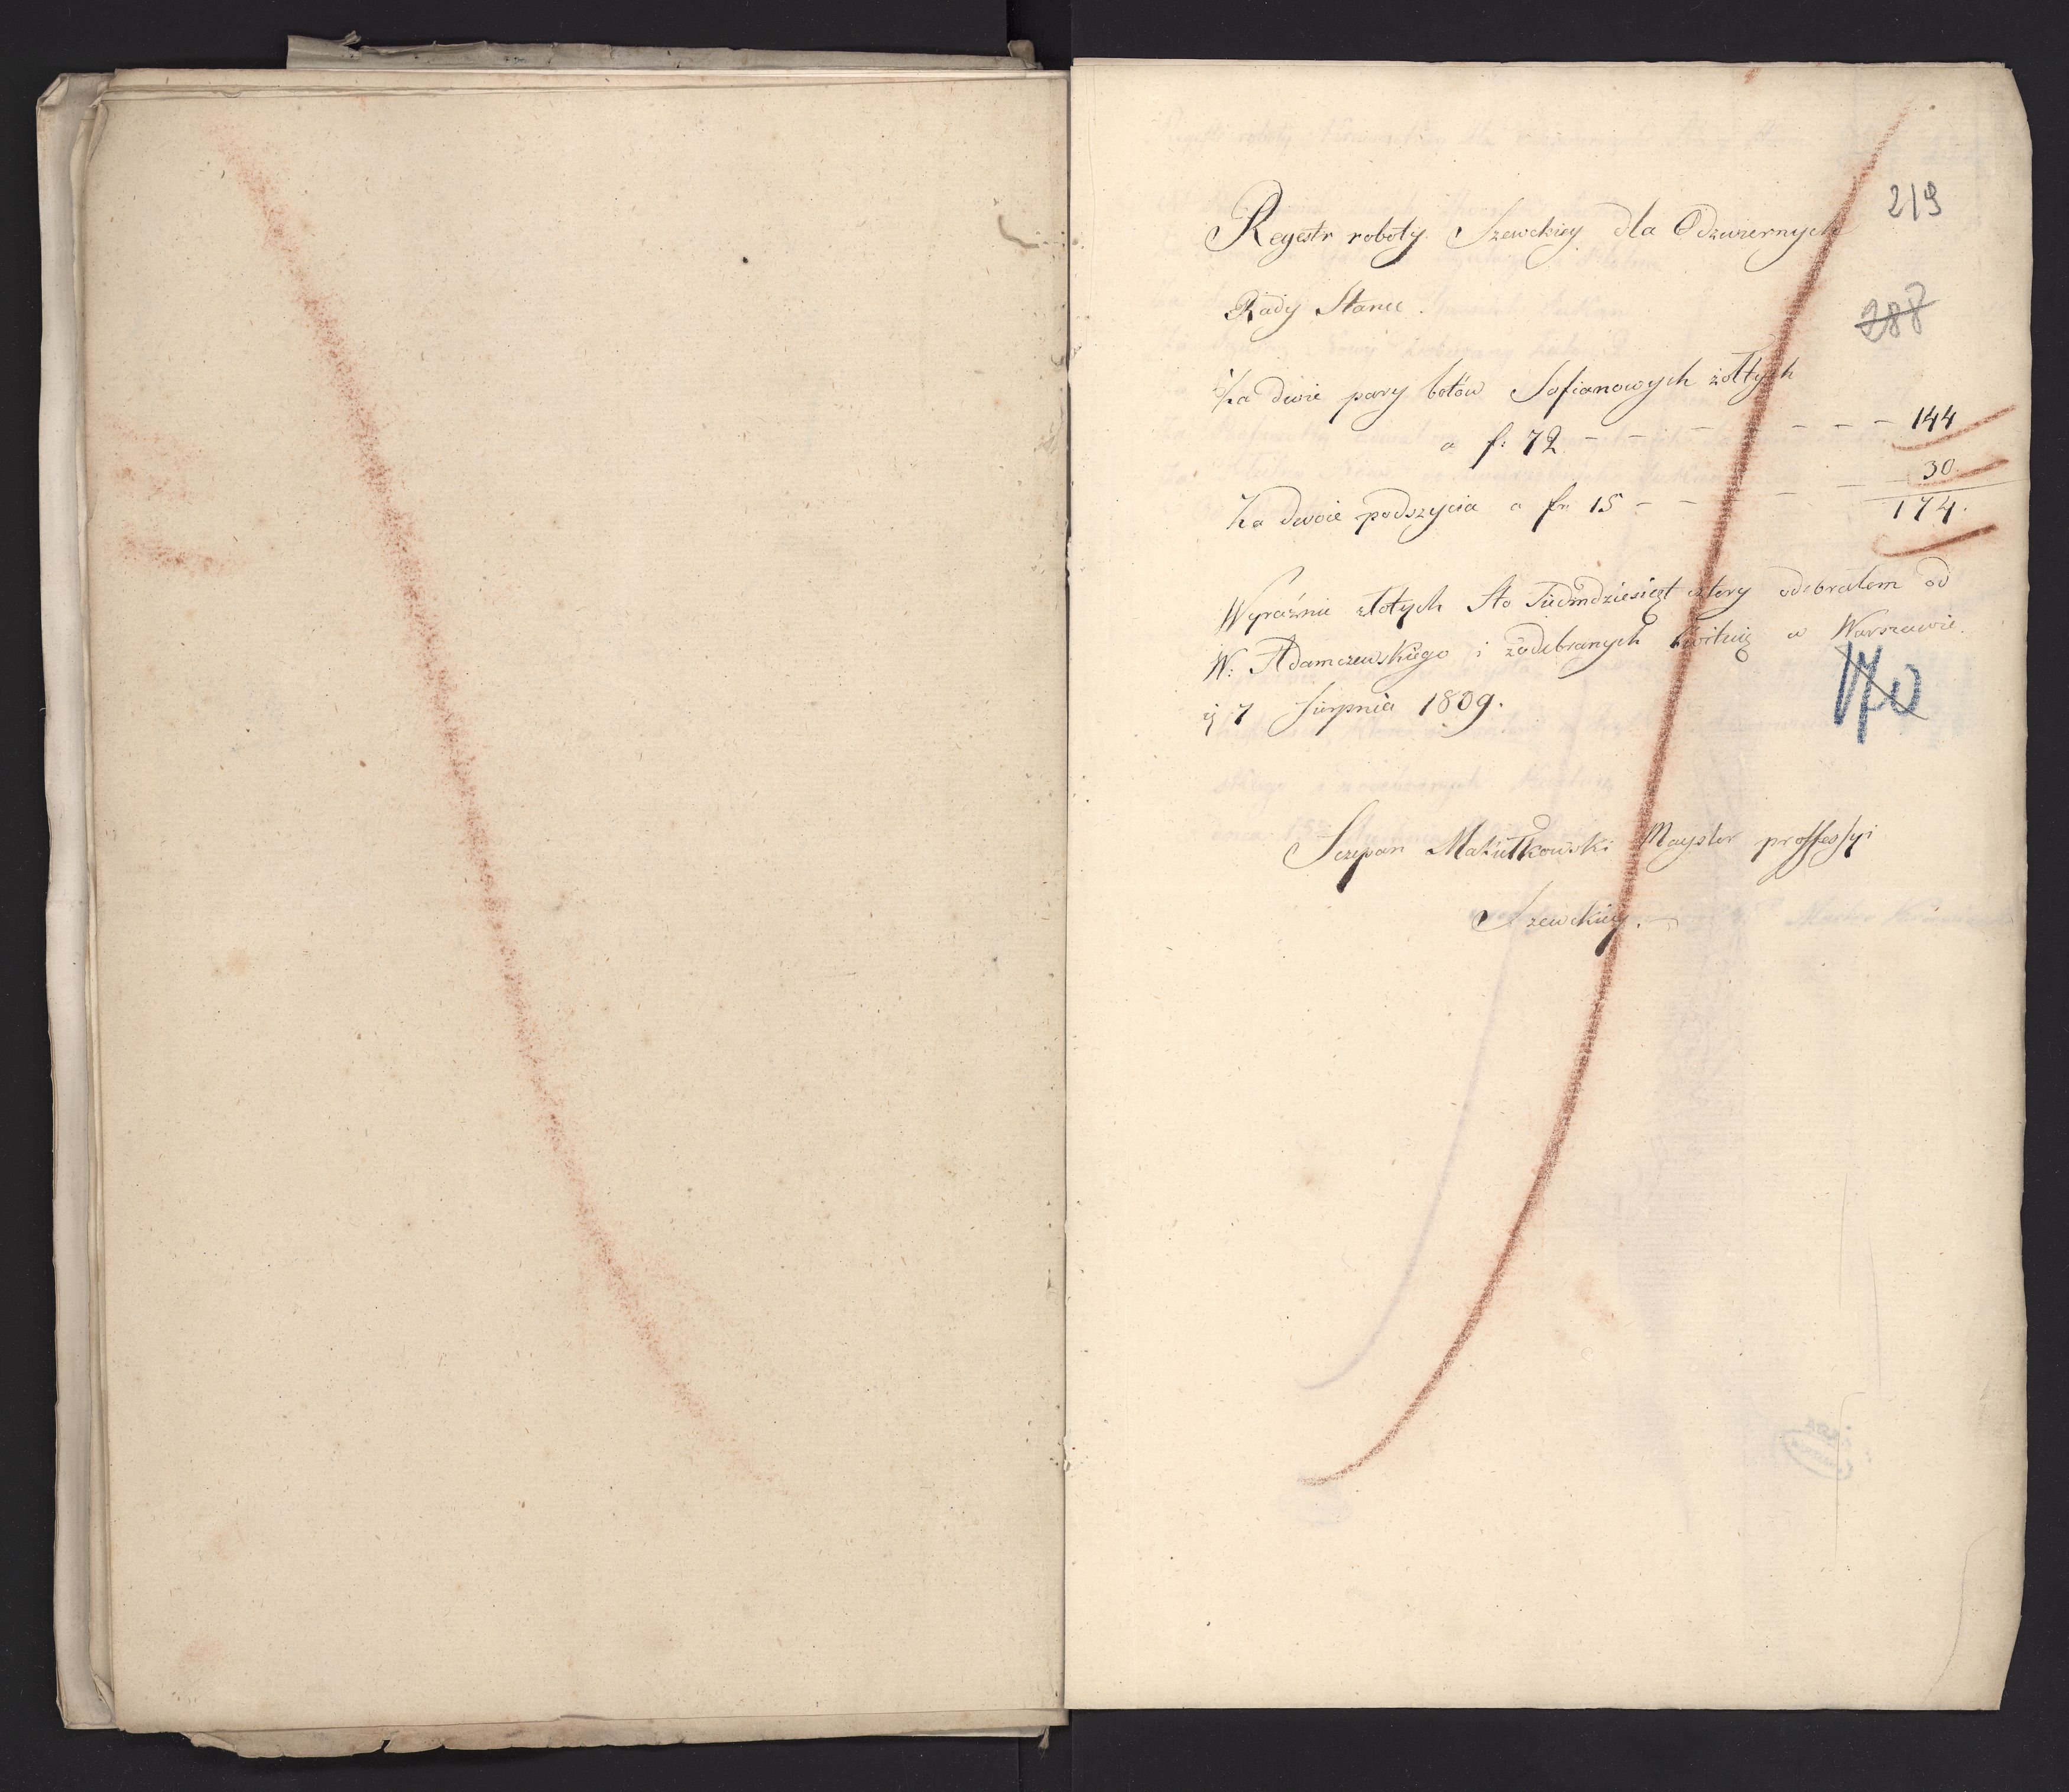 219
Regestr roboty Szewckiey dla Odzwiernych
288
Rady Stanu.
Za dwie pary botów Safianowych żołtych
a f: 72 - - - - - - - 144
30.
Za dwoie podszycia a fr 15 - - - - -
174.
Wyraźnie złotych Sto Siedmdziesiąt cztery odebrałem od
W: Adamczewskiego i zodebranych kwituię w Warszawie
170
7 Sierpnia 1809.
Sczepan Makułkowski Mayster proffessyi
Szewckiey.